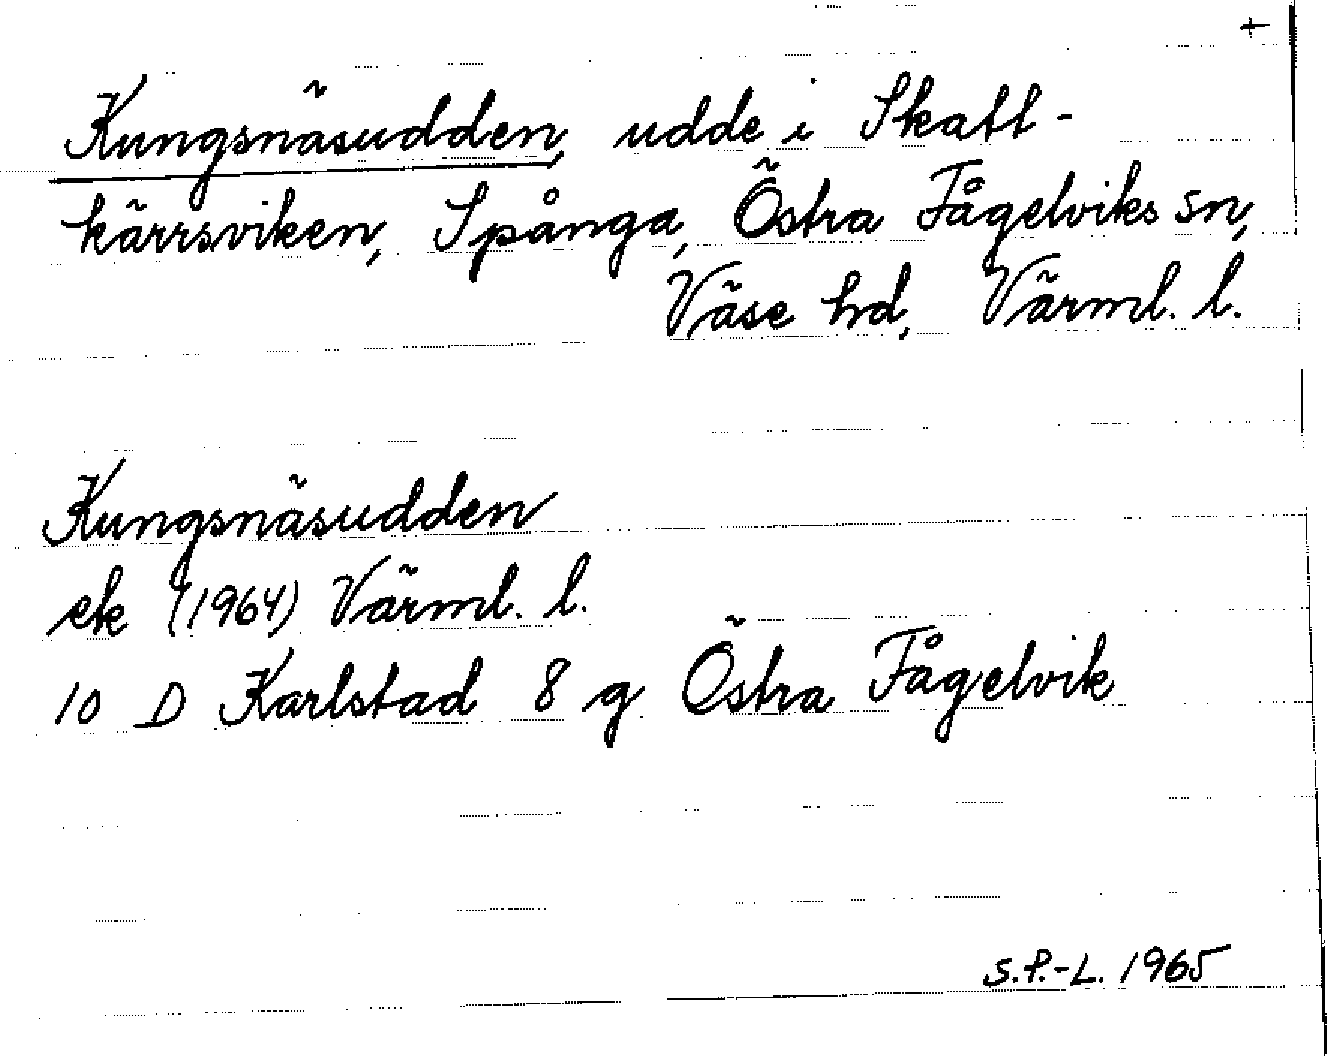 +
Kungsnäsudden, udde i Skatt-
kärrsviken, Spånga, Östra Fågelviks sn,
Väse hd, Värml. l.
Kungsnäsudden
ek (1964) Värml. l.
10 D Karlstad 8 g Östra Fågelvik
S.P.-L. 1965